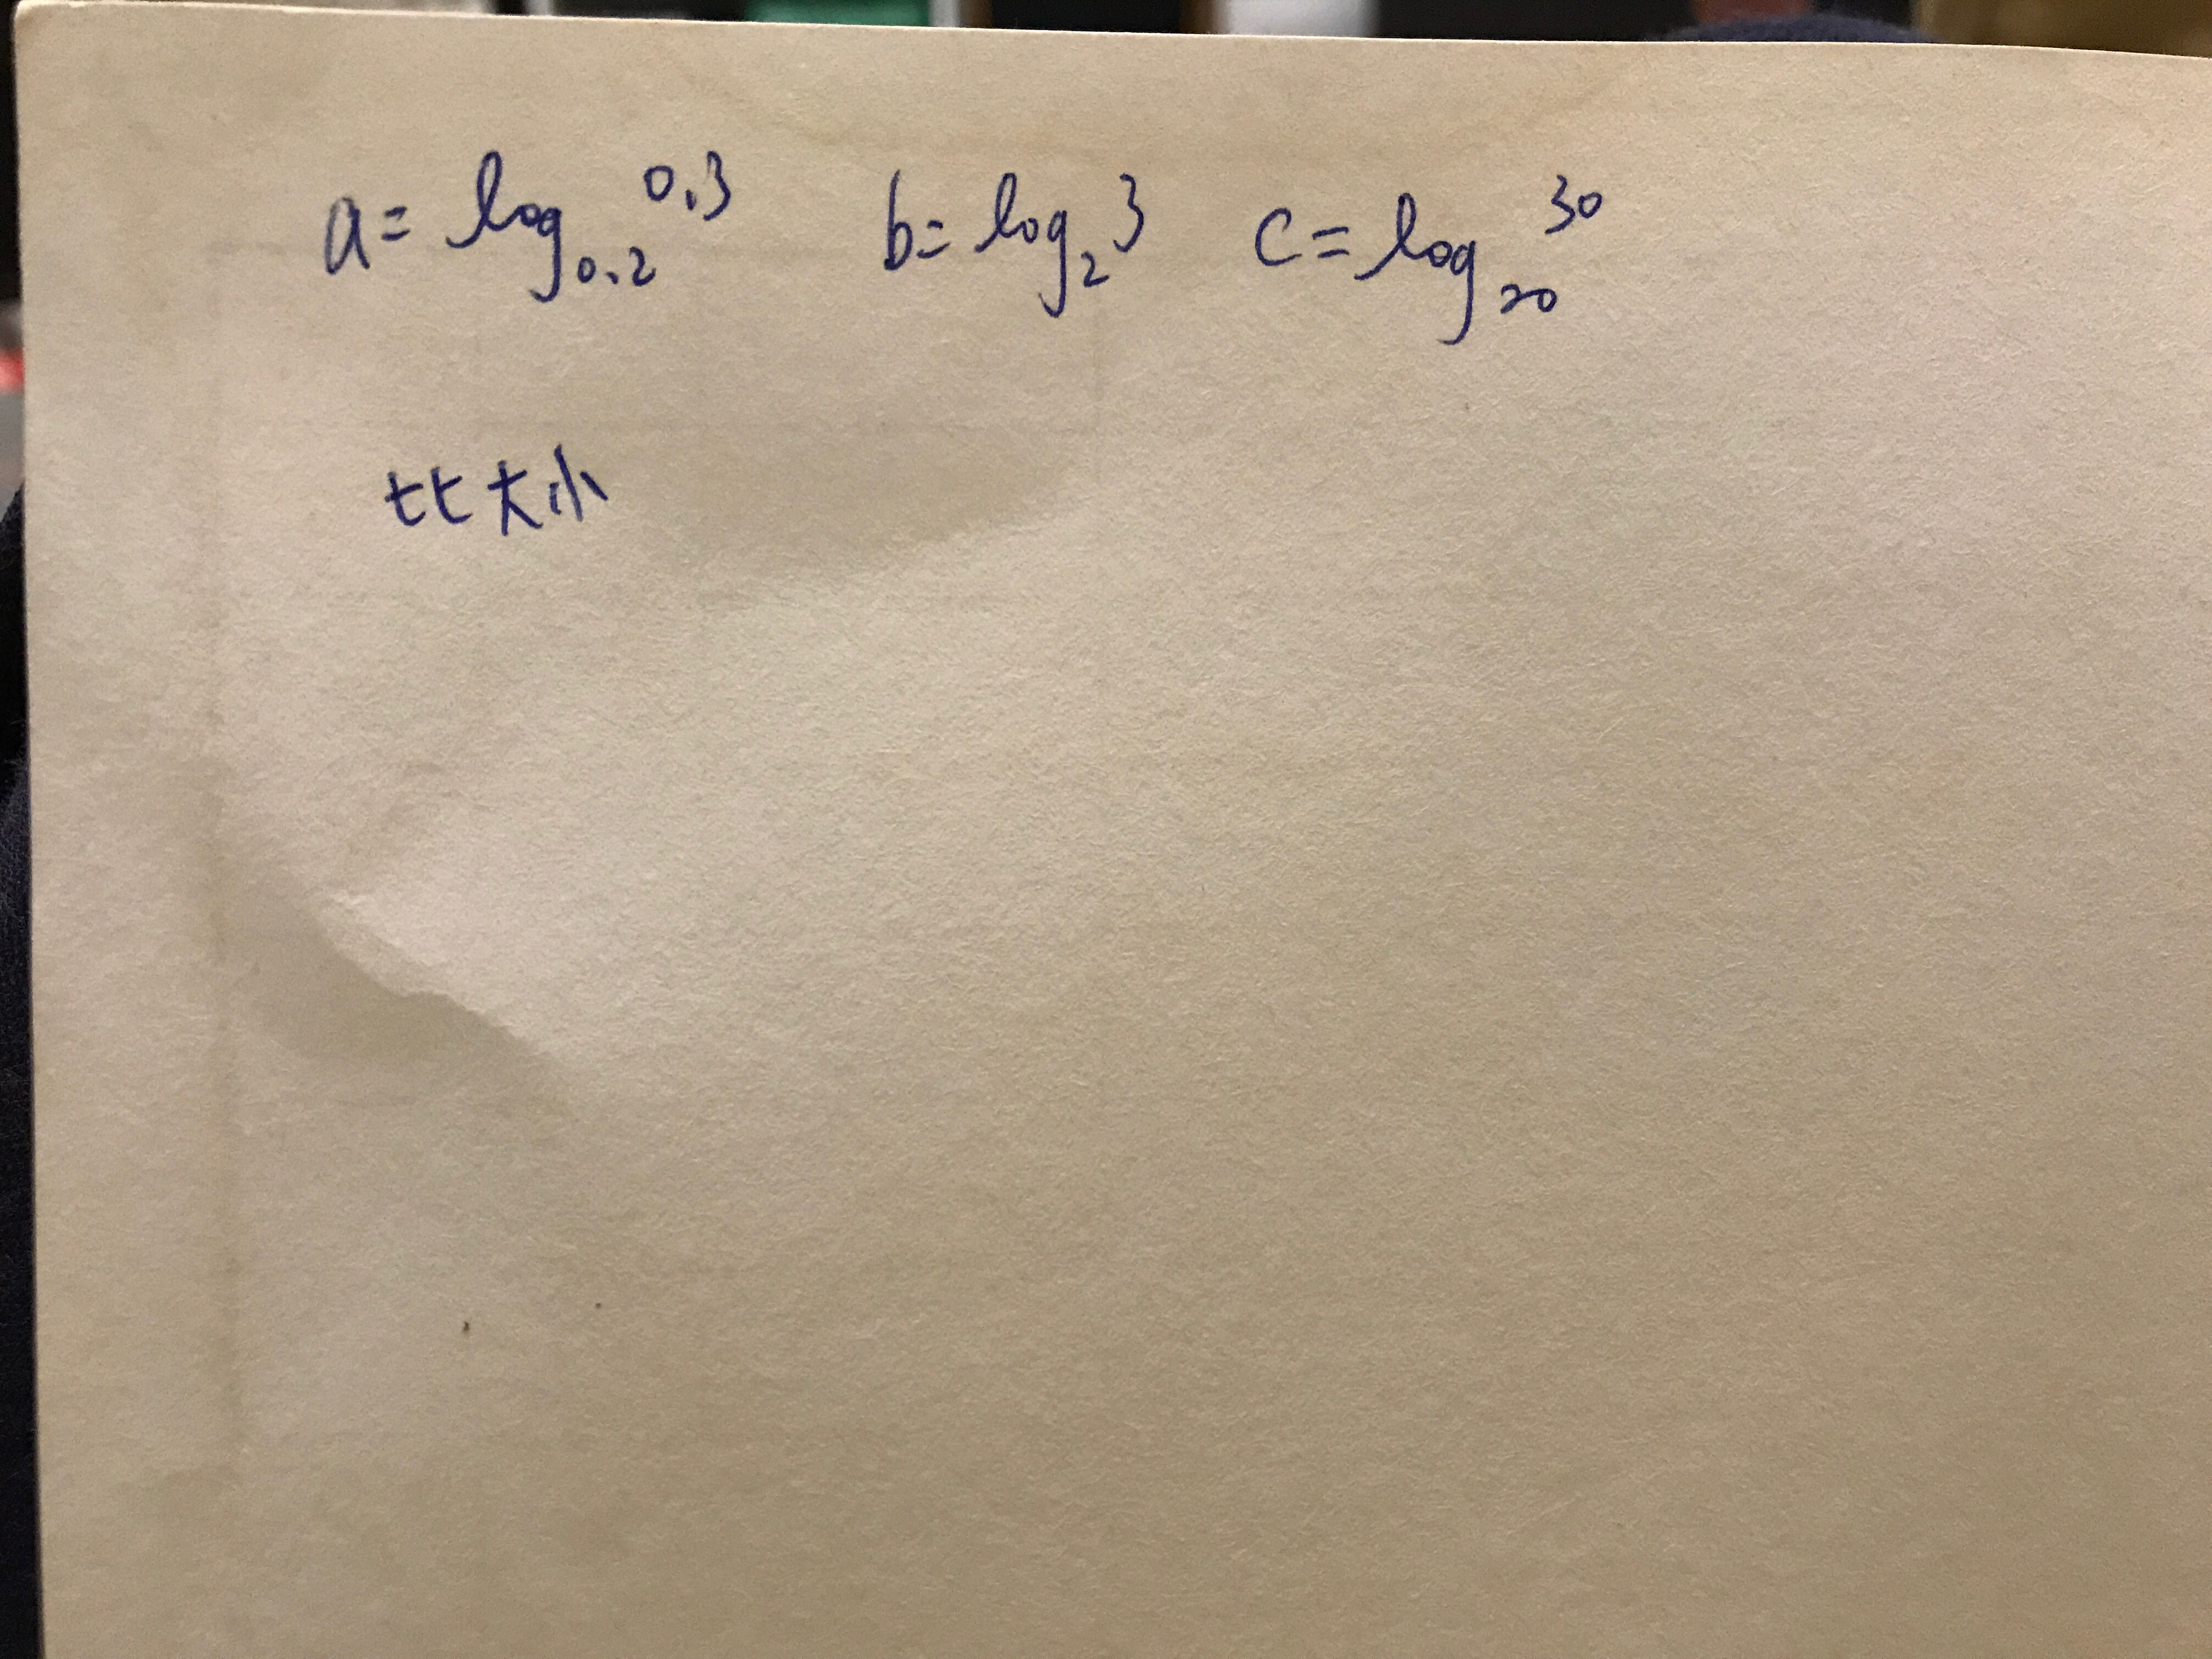 a = log₀.₂ 0.3 b = log₂ 3 c = log₂₀ 30
比大小